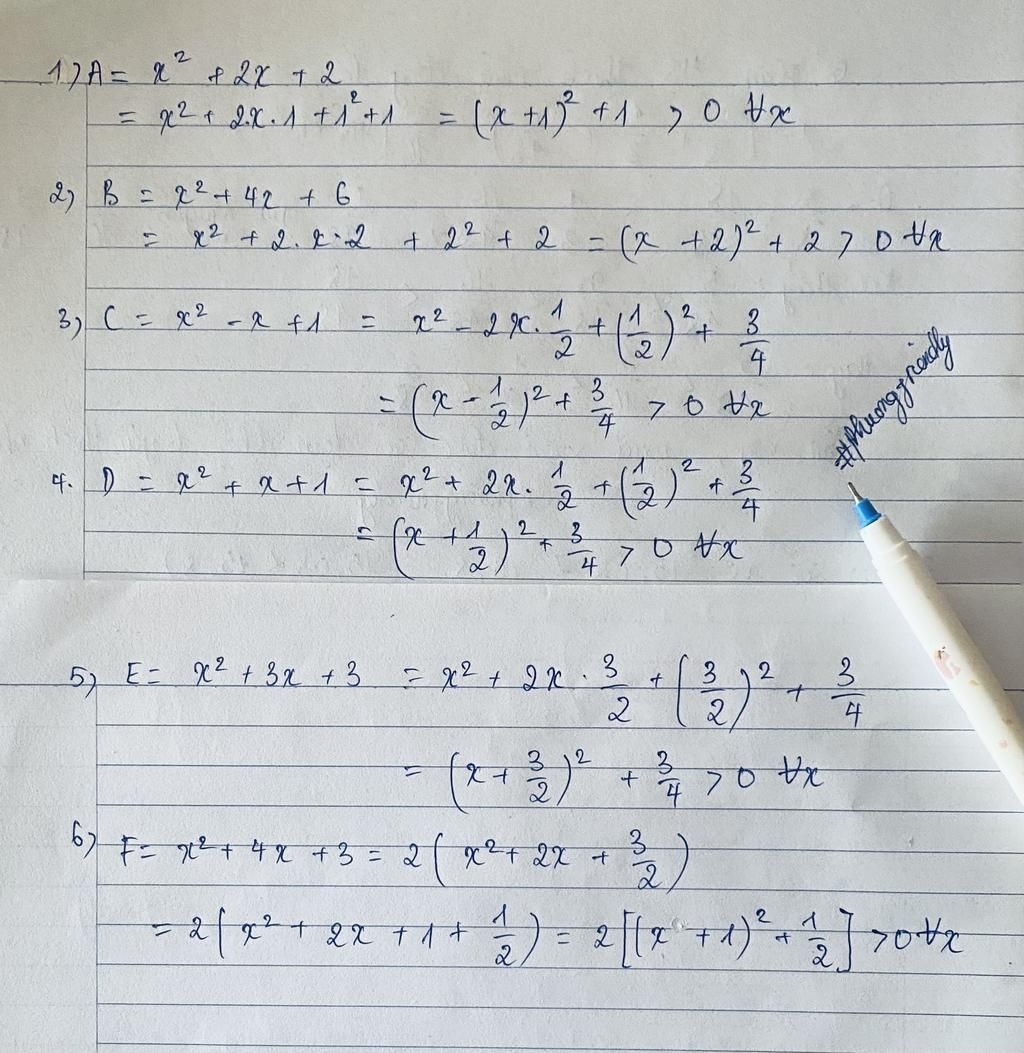 1) A = x² + 2x + 2
= x² + 2.x.1 + 1² + 1 = (x + 1)² + 1 > 0 ∀x
2) B = x² + 4x + 6
= x² + 2.x.2 + 2² + 2 = (x + 2)² + 2 > 0 ∀x
3) C = x² - x + 1 = x² - 2x.1/2 + (1/2)² + 3/4
= (x - 1/2)² + 3/4 > 0 ∀x
4. D = x² + x + 1 = x² + 2x.1/2 + (1/2)² + 3/4
= (x + 1/2)² + 3/4 > 0 ∀x
#phuongfriendly
5) E = x² + 3x + 3 = x² + 2x.3/2 + (3/2)² + 3/4
= (x + 3/2)² + 3/4 > 0 ∀x
6) F = x² + 4x + 3 = 2(x² + 2x + 3/2)
= 2(x² + 2x + 1 + 1/2) = 2[(x + 1)² + 1/2] > 0 ∀x